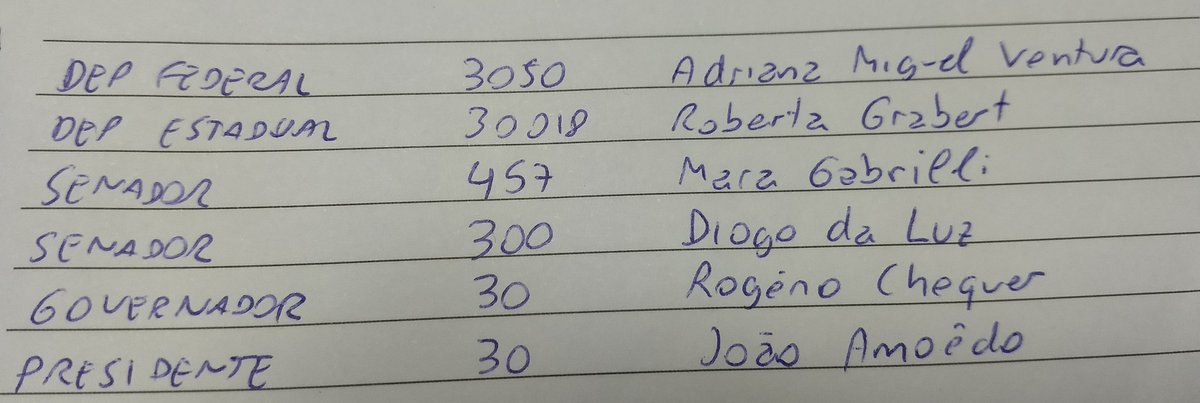 DEP FEDERAL 3050 Adriana Miguel Ventura
DEP ESTADUAL 30018 Roberta Grabert
SENADOR 457 Mara Gabrilli
SENADOR 300 Diogo da Luz
GOVERNADOR 30 Rogério Chequer
PRESIDENTE 30 João Amoêdo